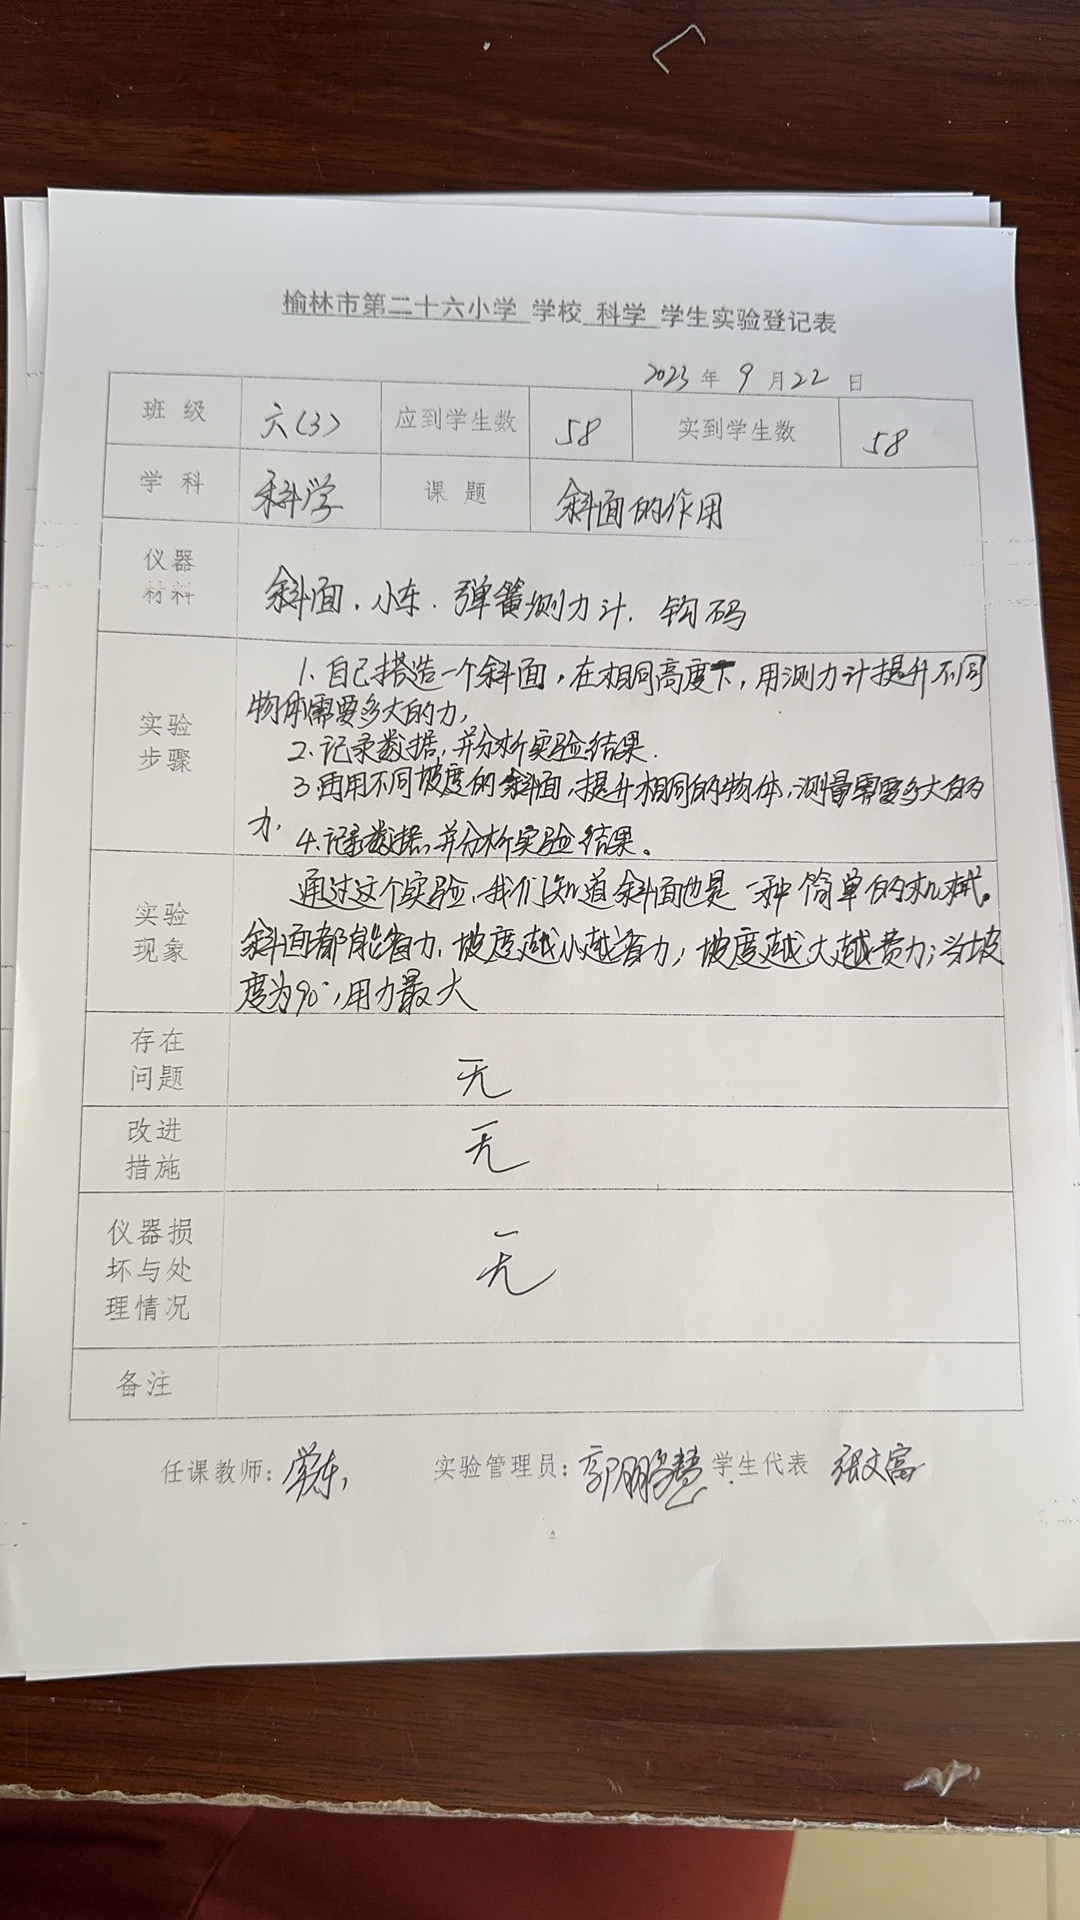 榆林市第二十六小学 学校 科学 学生实验登记表
2023 年 9 月 22 日
班 级 六(3) 应到学生数 58 实到学生数 58
学 科 科学 课 题 斜面的作用
仪器
材料
斜面、小车、弹簧测力计、钩码
实验
步骤
1.自己搭造一个斜面,在相同高度下,用测力计提升不同
物体需要多大的力,
2.记录数据,并分析实验结果.
3.再用不同坡度的斜面,提升相同的物体,测量需要多大的
力.
4.记录数据,并分析实验结果。
实验
现象
通过这个实验,我们知道斜面也是一种简单的机械。
斜面都能省力,坡度越小越省力;坡度越大越费力;当坡
度为90°,用力最大
存在
问题
无
改进
措施
无
仪器损
坏与处
理情况
无
备注
任课教师: 实验管理员: 学生代表 张文富
4